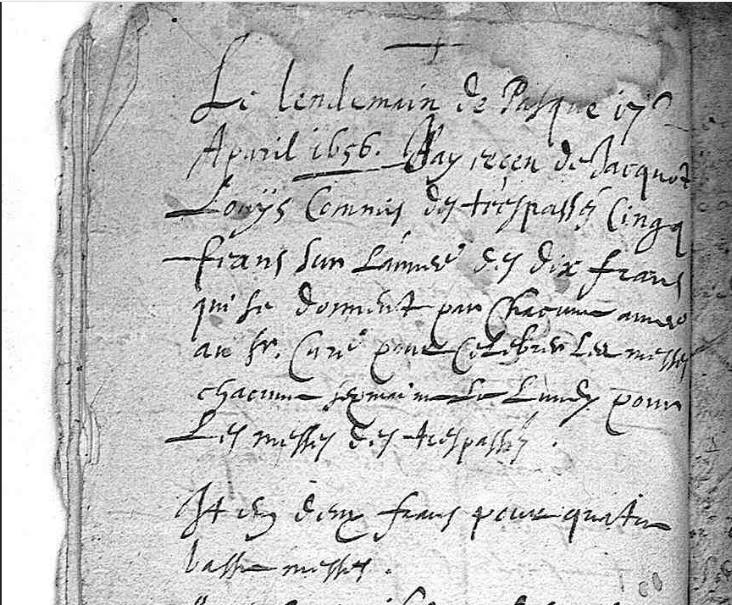 Le lendemain de Pasque 17e
Apuril 1656. J'ay receu de Jacquot
Louÿs Commis des trespassés Cingq
frans sur L'année des dix frans
qui se donnent par chacune année
au Sr. Curé pour Celebrer Les messes
chacune sepmaine Le Lundy pour
Les messes des trespassés.
Item deux frans pour quatre
basse messes.